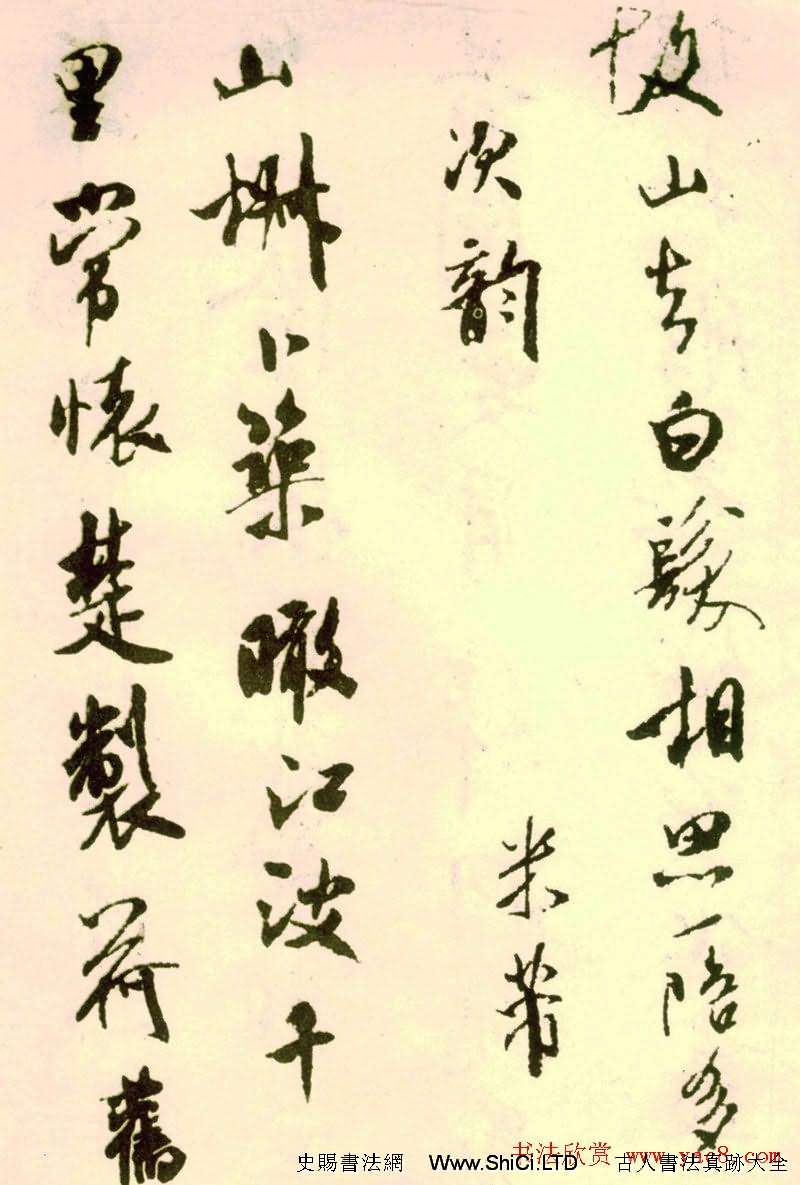 故山去白髮相思一陪多
次韵 米芾
山㭎卜築瞰江波千
里常懷楚製荷舊
书法欣赏 www.yac8.com
史賜書法網 Www.ShiCi.LTD 古人書法真跡大全